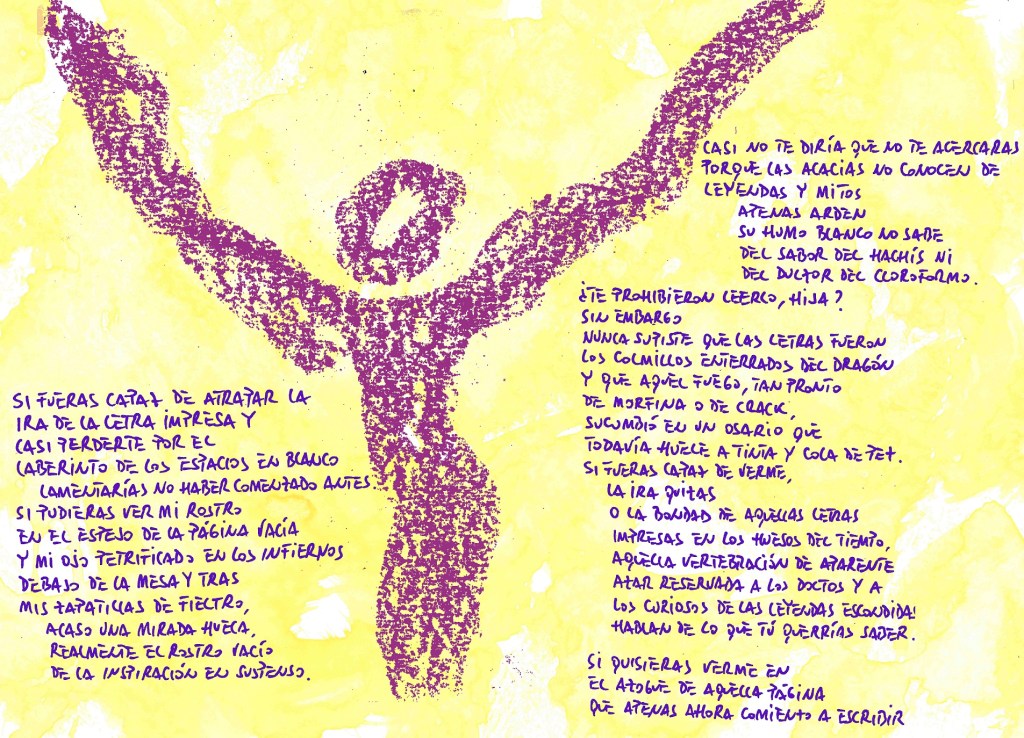 SI FUERAS CAPAZ DE ATRAPAR LA
IRA DE LA LETRA IMPRESA Y
CASI PERDERTE POR EL
LABERINTO DE LOS ESPACIOS EN BLANCO
LAMENTARÍAS NO HABER COMENZADO ANTES.
SI PUDIERAS VER MI ROSTRO
EN EL ESPEJO DE LA PÁGINA VACÍA
Y MI OJO PETRIFICADO EN LOS INFIERNOS
DEBAJO DE LA MESA Y TRAS
MIS ZAPATILLAS DE FIELTRO,
ACASO UNA MIRADA HUECA,
REALMENTE EL ROSTRO VACÍO
DE LA INSPIRACIÓN EN SUSPENSO.
CASI NO TE DIRÍA QUE NO TE ACERCARAS
PORQUE LAS ACACIAS NO CONOCEN DE
LEYENDAS Y MITOS
APENAS ARDEN
SU HUMO BLANCO NO SABE
DEL SABOR DEL HACHÍS NI
DEL DULZOR DEL CLOROFORMO.
¿TE PROHIBIERON LEERLO, HIJA?
SIN EMBARGO
NUNCA SUPISTE QUE LAS LETRAS FUERON
LOS COLMILLOS ENTERRADOS DEL DRAGÓN
Y QUE AQUEL FUEGO, TAN PRONTO
DE MORFINA O DE CRACK,
SUCUMBIÓ EN UN OSARIO QUE
TODAVÍA HUELE A TINTA Y COLA DE PEZ.
SI FUERAS CAPAZ DE VERME,
LA IRA QUIZAS
O LA BONDAD DE AQUELLAS LETRAS
IMPRESAS EN LOS HUESOS DEL TIEMPO,
AQUELLA VERTEBRACIÓN DE APARENTE
AZAR RESERVADA A LOS DOCTOS Y A
LOS CURIOSOS DE LAS LEYENDAS ESCONDIDAS
HABLAN DE LO QUE TÚ QUERRÍAS SABER.
SI QUISIERAS VERME EN
EL AZOGUE DE AQUELLA PÁGINA
QUE APENAS AHORA COMIENZO A ESCRIBIR